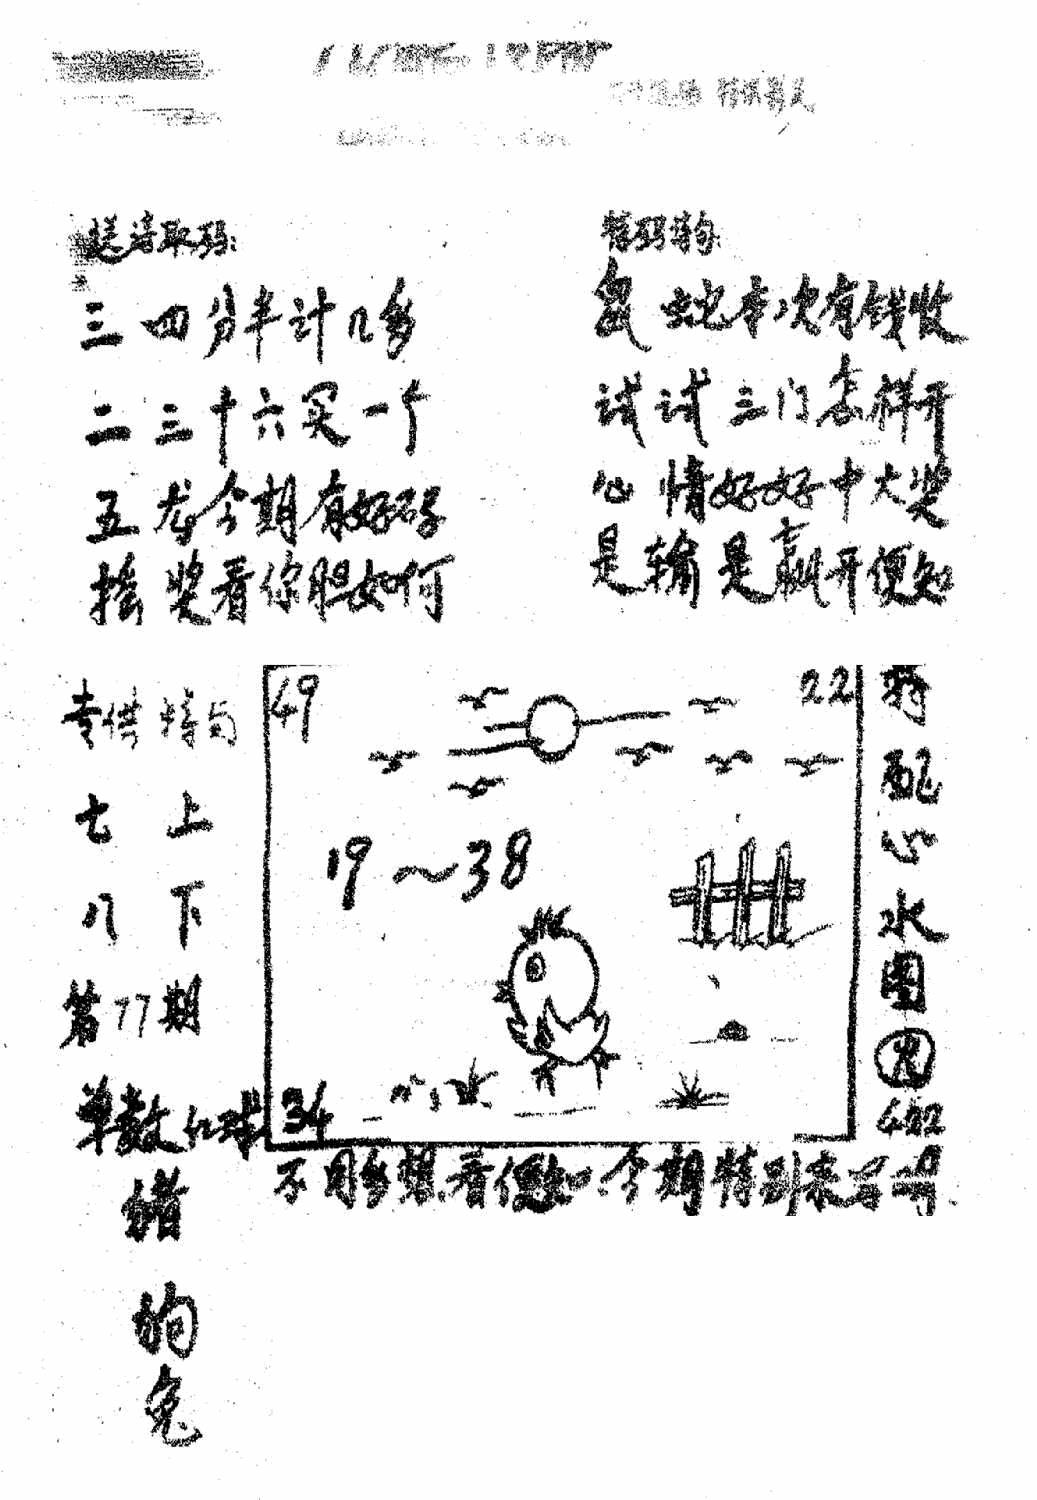 送诗取码:
三四分半计几多
二三十六买一个
五龙今期有好码
摇奖看你胆如何
特码诗句:
鼠蛇本次有钱收
试试三门怎样开
心情好好中大奖
是输是赢开便知
专供特句
七上
八下
第77期
单数红球
猪
狗
兔
49
22
19～38
34
特
配
心
水
图
火
422
不用多想.看便知.今期特别来